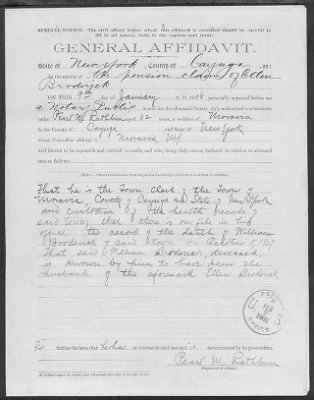 SPECIAL NOTICE.
GENERAL AFFIDAVIT.
State of New York, County of Cayuga, ss:
In the matter of the pension claim of Ellen
Broderick
On this day of January, 1908, personally appeared before me
a Notary Public in and for the aforesaid County, duly authorized to administer
oaths Pearl M. Rathbun aged 32 years, a of Moravia
in the County of Cayuga and State of New York
whose Post-office address is Moravia, NY
well known to be reputable and entitled to credit, and who, being duly sworn, declared in relation to aforesaid
case as follows:
That he is the Town Clerk of the Town of
Moravia, County of Cayuga and State of New York
and custodian of the health records of
said town; that there is on file in his
office the record of the death of William
Broderick of said town on October 5 1907
That said William Broderick, deceased
is known by him to have been the
husband of the aforesaid Ellen Broderick
He further declares that he has no interest in said case and is not concerned in its prosecution.
Pearl M. Rathbun